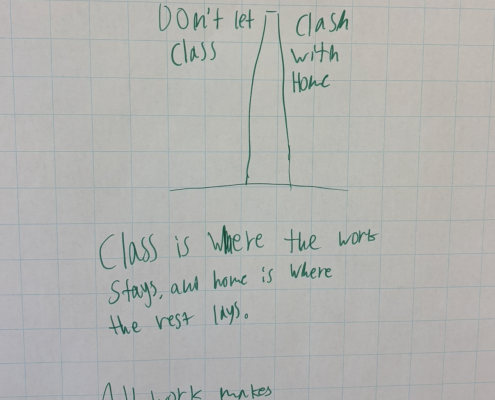 DOn't let
Class
Clash
with
Home
Class is Where the work
Stays, and home is where
the rest lays.
All work makes